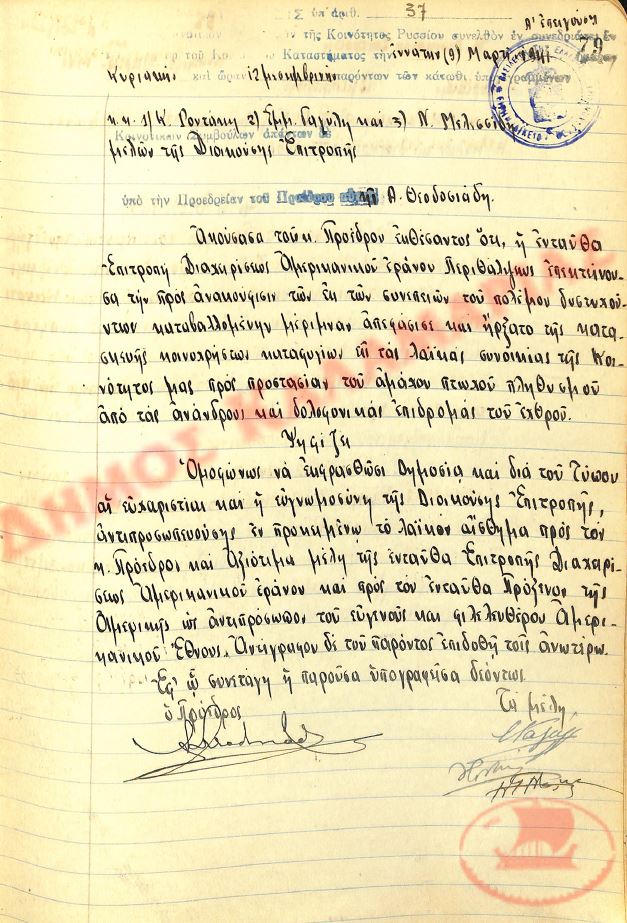 Σ ὑπ' ἀριθ. 37
Α' ἐπειγούσα
79
τῆς Κοινότητος Ρυσσίου συνελθὸν ἐν συνεδριάσει ἐν
τοῦ Καταστήματος τὴν ἐννάτην (9) Μαρτίου 1941
Κυριακὴν καὶ ὥραν 12 μεσημβρινὴν παρόντων τῶν κάτωθι ὑπογεγραμμένων
κ.κ. 1) Κ. Ροντάκη 2) Ἐμμ. Γαγύλη καὶ 3) Ν. Μελισσ
Κοινοτικῶν Συμβούλων
μελῶν τῆς Διοικούσης Ἐπιτροπῆς
ὑπὸ τὴν Προεδρείαν τοῦ Προέδρου αὐτῆς Α. Θεοδοσιάδη.
Ἀκούσασα τοῦ κ. Προέδρου ἐκθέσαντος ὅτι, ἡ ἐνταῦθα
Ἐπιτροπὴ Διαχειρίσεως Ἀμερικανικοῦ ἐράνου Περιθάλψεως ἐπεκτείνου-
σα τὴν πρὸς ἀνακούφισιν τῶν ἐκ τῶν συνεπειῶν τοῦ πολέμου δυστυχού-
ντων καταβαλλομένην μέριμναν ἀπεφάσισε καὶ ἤρξατο τῆς κατα-
σκευῆς κοινοχρήστων καταφυγίων εἰς τὰς λαϊκὰς συνοικίας τῆς Κοι-
νότητος μας πρὸς προστασίαν τοῦ ἀμάχου πτωχοῦ πληθυσμοῦ
ἀπὸ τὰς ἀνάνδρους καὶ δολοφονικὰς ἐπιδρομὰς τοῦ ἐχθροῦ.
Ψηφίζει
Ὁμοφώνως νὰ ἐκφρασθῶσι δημοσίᾳ καὶ διὰ τοῦ Τύπου
αἱ εὐχαριστίαι καὶ ἡ εὐγνωμοσύνη τῆς Διοικούσης Ἐπιτροπῆς,
ἀντιπροσωπευούσης ἐν προκειμένῳ τὸ λαϊκὸν αἴσθημα πρὸς τὸν
κ. Πρόεδρον καὶ Ἀξιότιμα μέλη τῆς ἐνταῦθα Ἐπιτροπῆς Διαχειρί-
σεως Ἀμερικανικοῦ ἐράνου καὶ πρὸς τὸν ἐνταῦθα Πρόξενον τῆς
Ἀμερικῆς ὡς ἀντιπρόσωπον τοῦ εὐγενοῦς καὶ φιλελευθέρου Ἀμερι-
κανικοῦ Ἔθνους. Ἀντίγραφον δὲ τοῦ παρόντος ἐπιδοθῇ τοῖς ἀνωτέρω.
Ἐφ' ᾧ συνετάγη ἡ παροῦσα ὑπογραφεῖσα δεόντως.
ὁ Πρόεδρος
Τὰ μέλη
ΔΗΜΟΣ ΚΑΛΑΜΑΡΙΑΣ